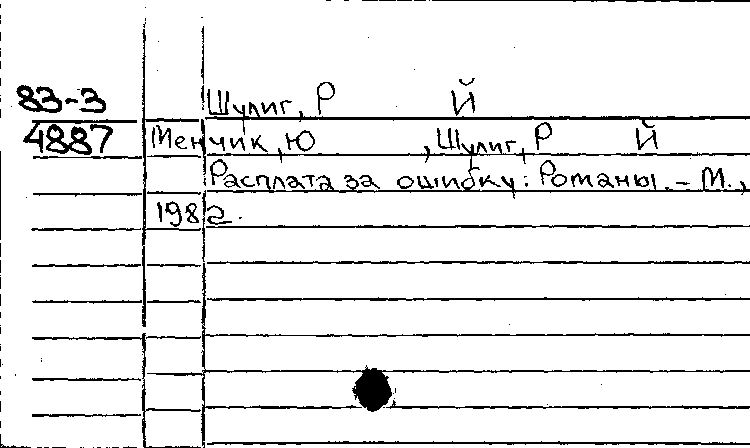 83-3 Шулиг, Р Й
4887 Менчик, Ю , Шулиг, Р Й
Расплата за ошибку: Романы. - М.,
1982.